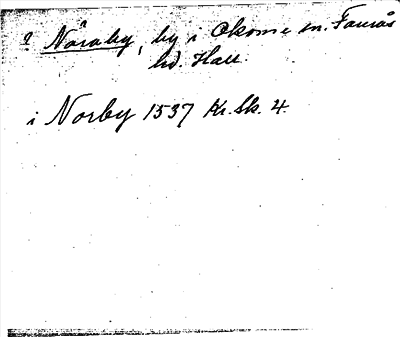 ? Nåraby, by i Okome sn. Faurås
hd. Hall.
i Norby 1537 Kr. Sk. 4.